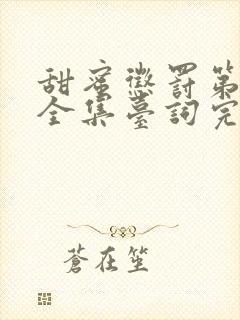 甜蜜懲罰第
全集臺詞完
蒼在笙